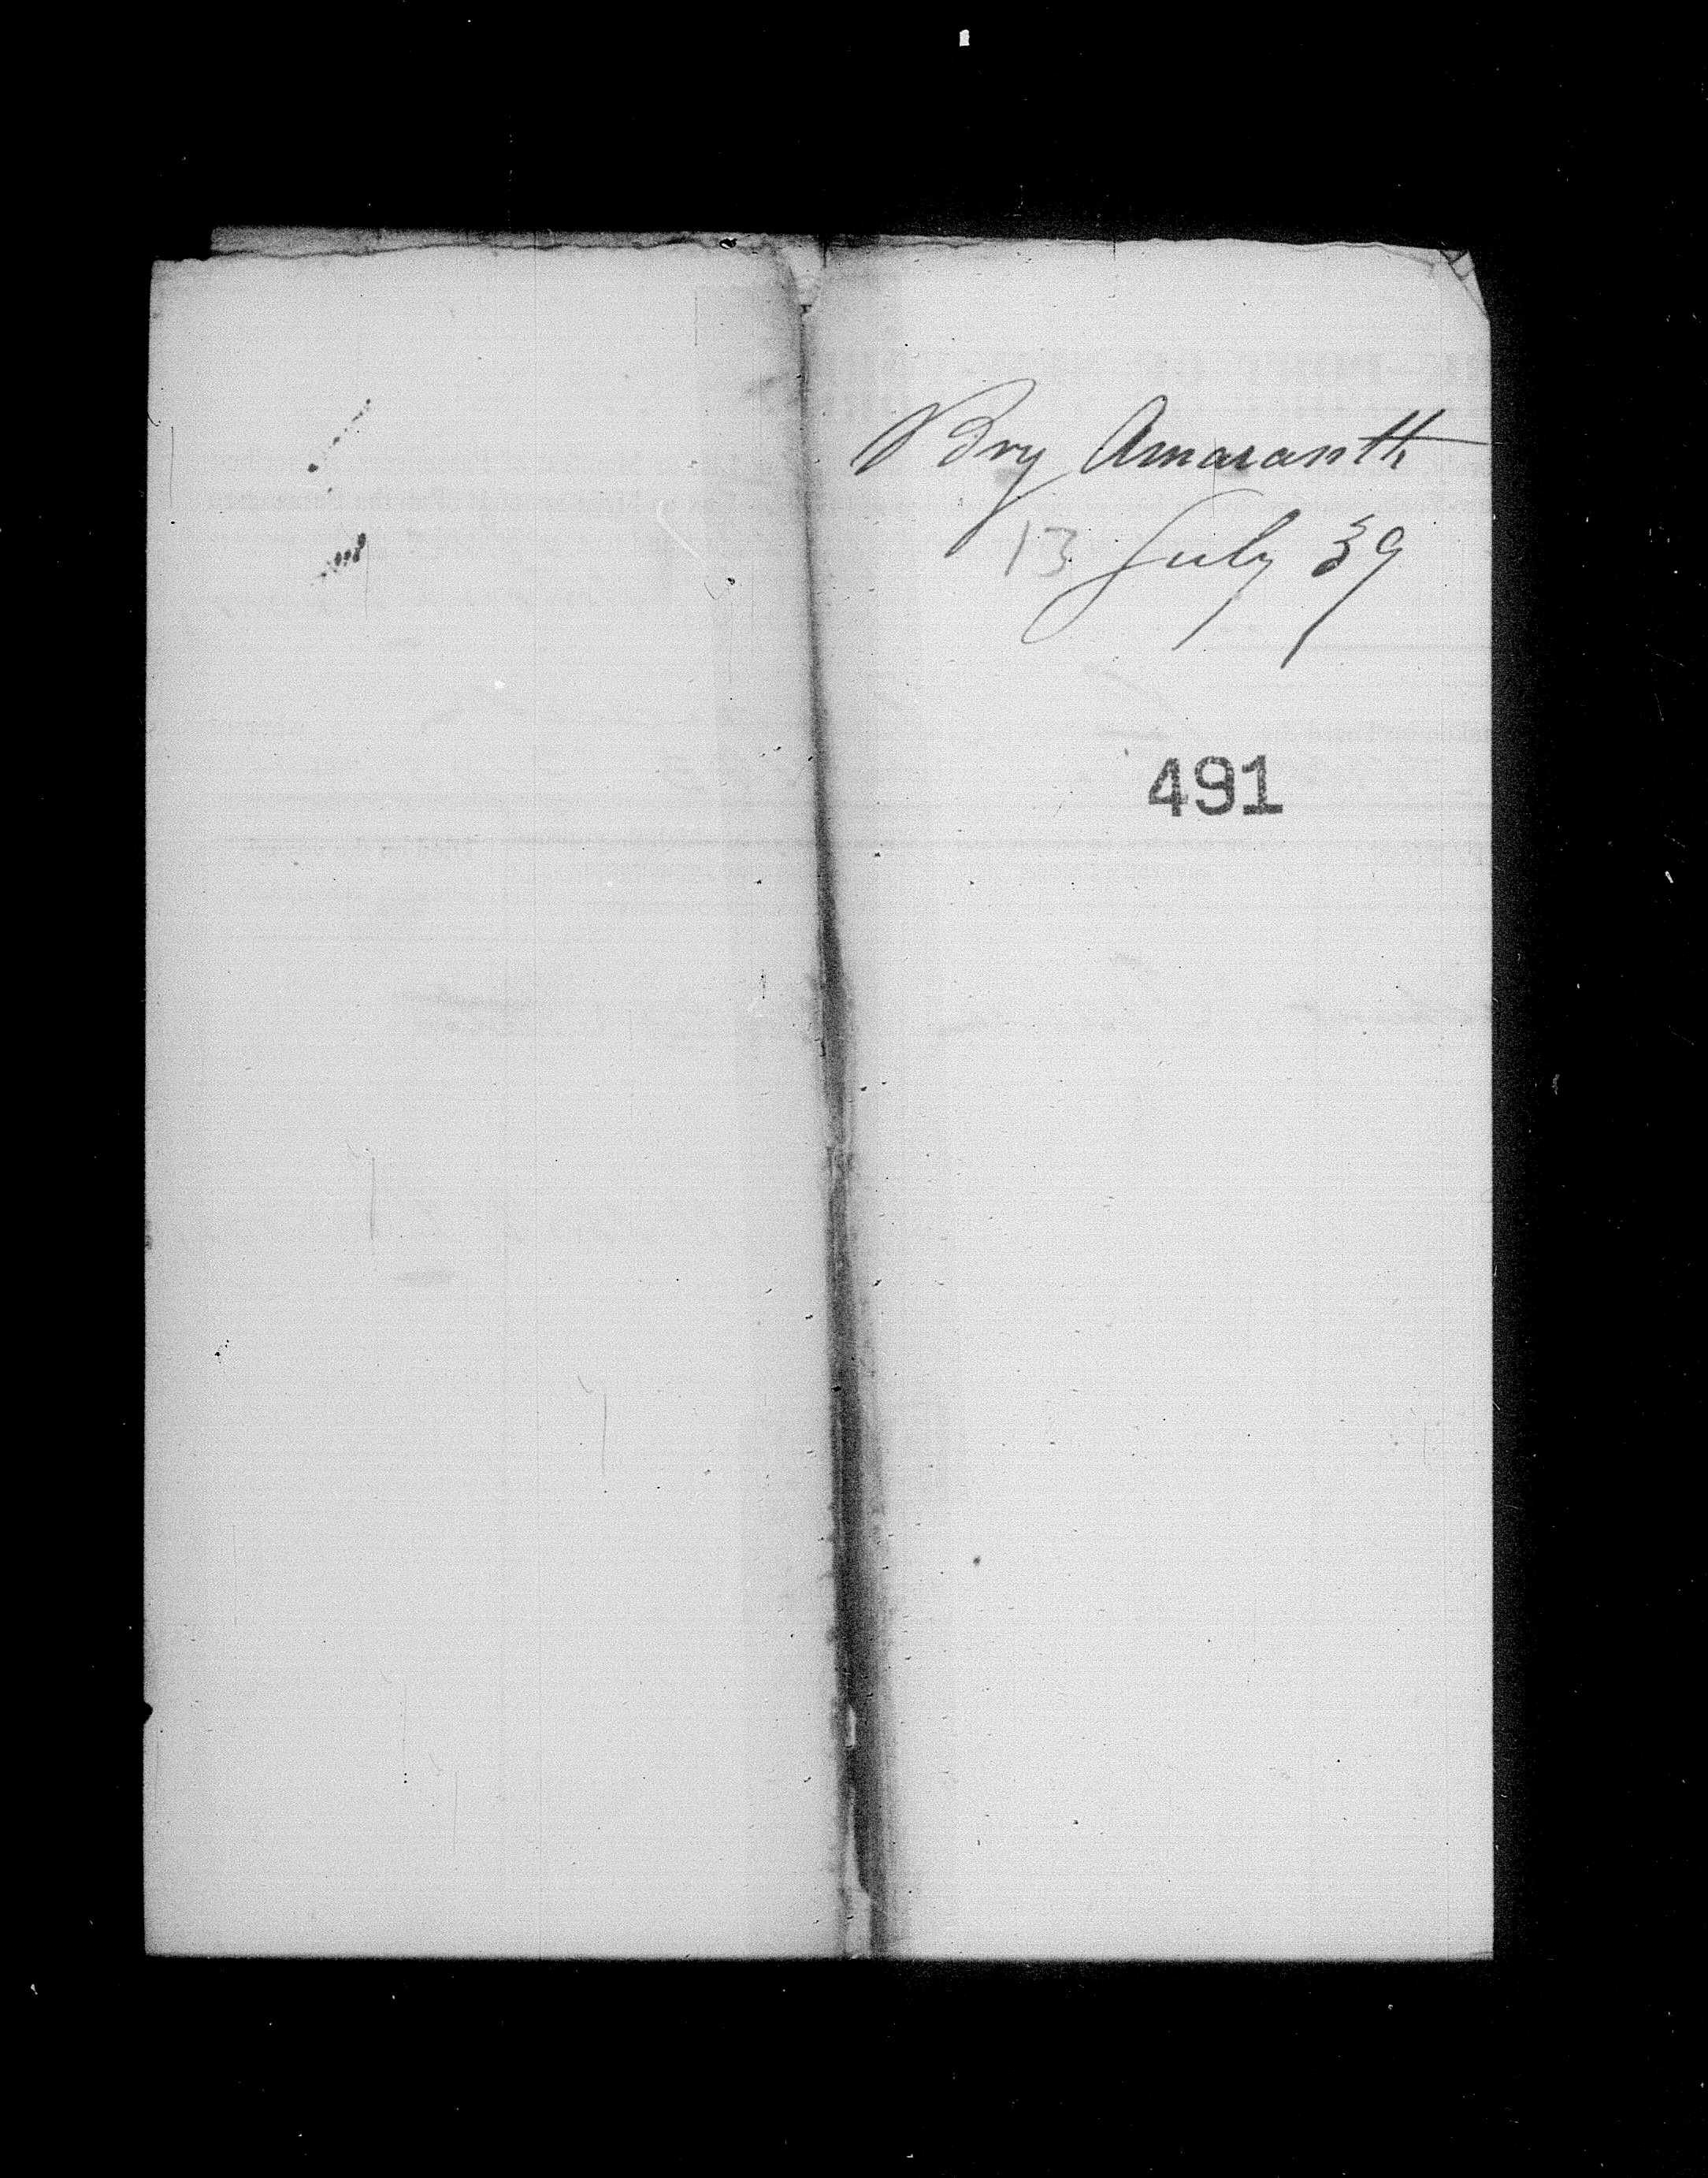 Brg Amaranth
13 July 39
491